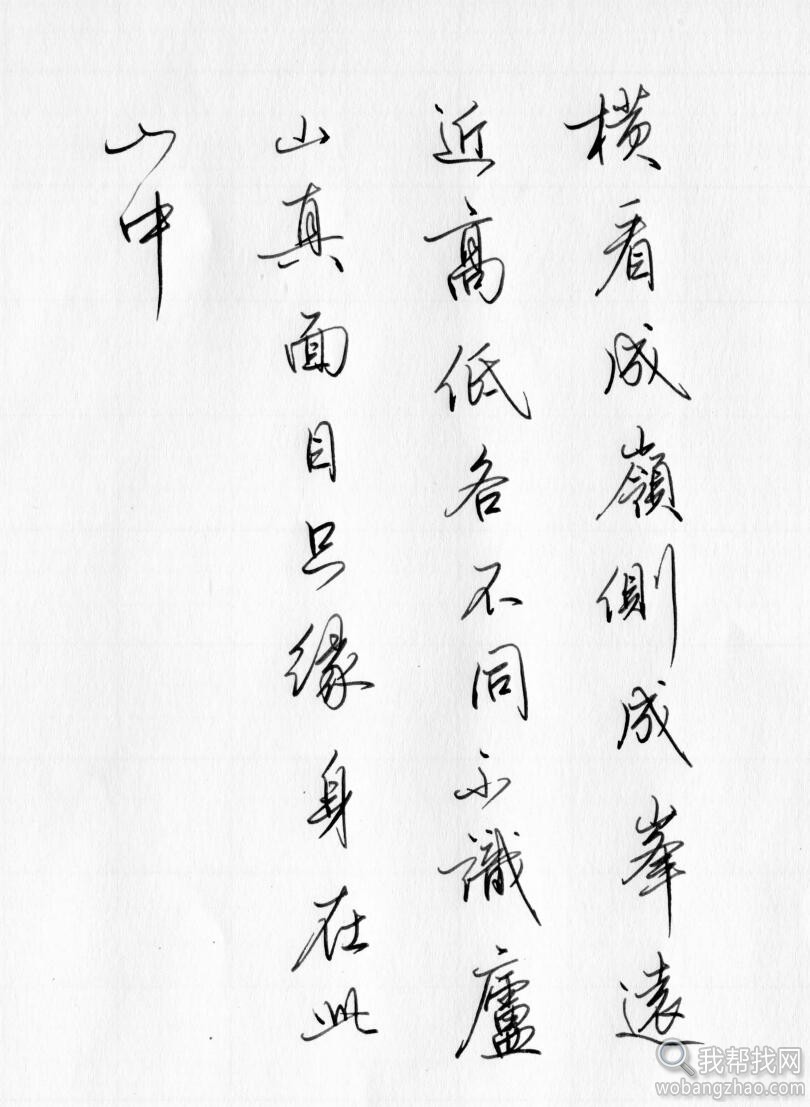 横看成嶺側成峯遠
近高低各不同不識廬
山真面目只緣身在此
山中
我帮找网
wobangzhao.com